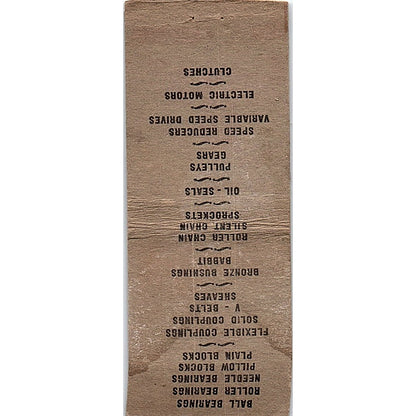 BALL BEARINGS
ROLLER BEARINGS
NEEDLE BEARINGS
PILLOW BLOCKS
PLAIN BLOCKS
FLEXIBLE COUPLINGS
SOLID COUPLINGS
V - BELTS
SHEAVES
BRONZE BUSHINGS
BABBIT
ROLLER CHAIN
SILENT CHAIN
SPROCKETS
OIL - SEALS
PULLEYS
GEARS
SPEED REDUCERS
VARIABLE SPEED DRIVES
ELECTRIC MOTORS
CLUTCHES